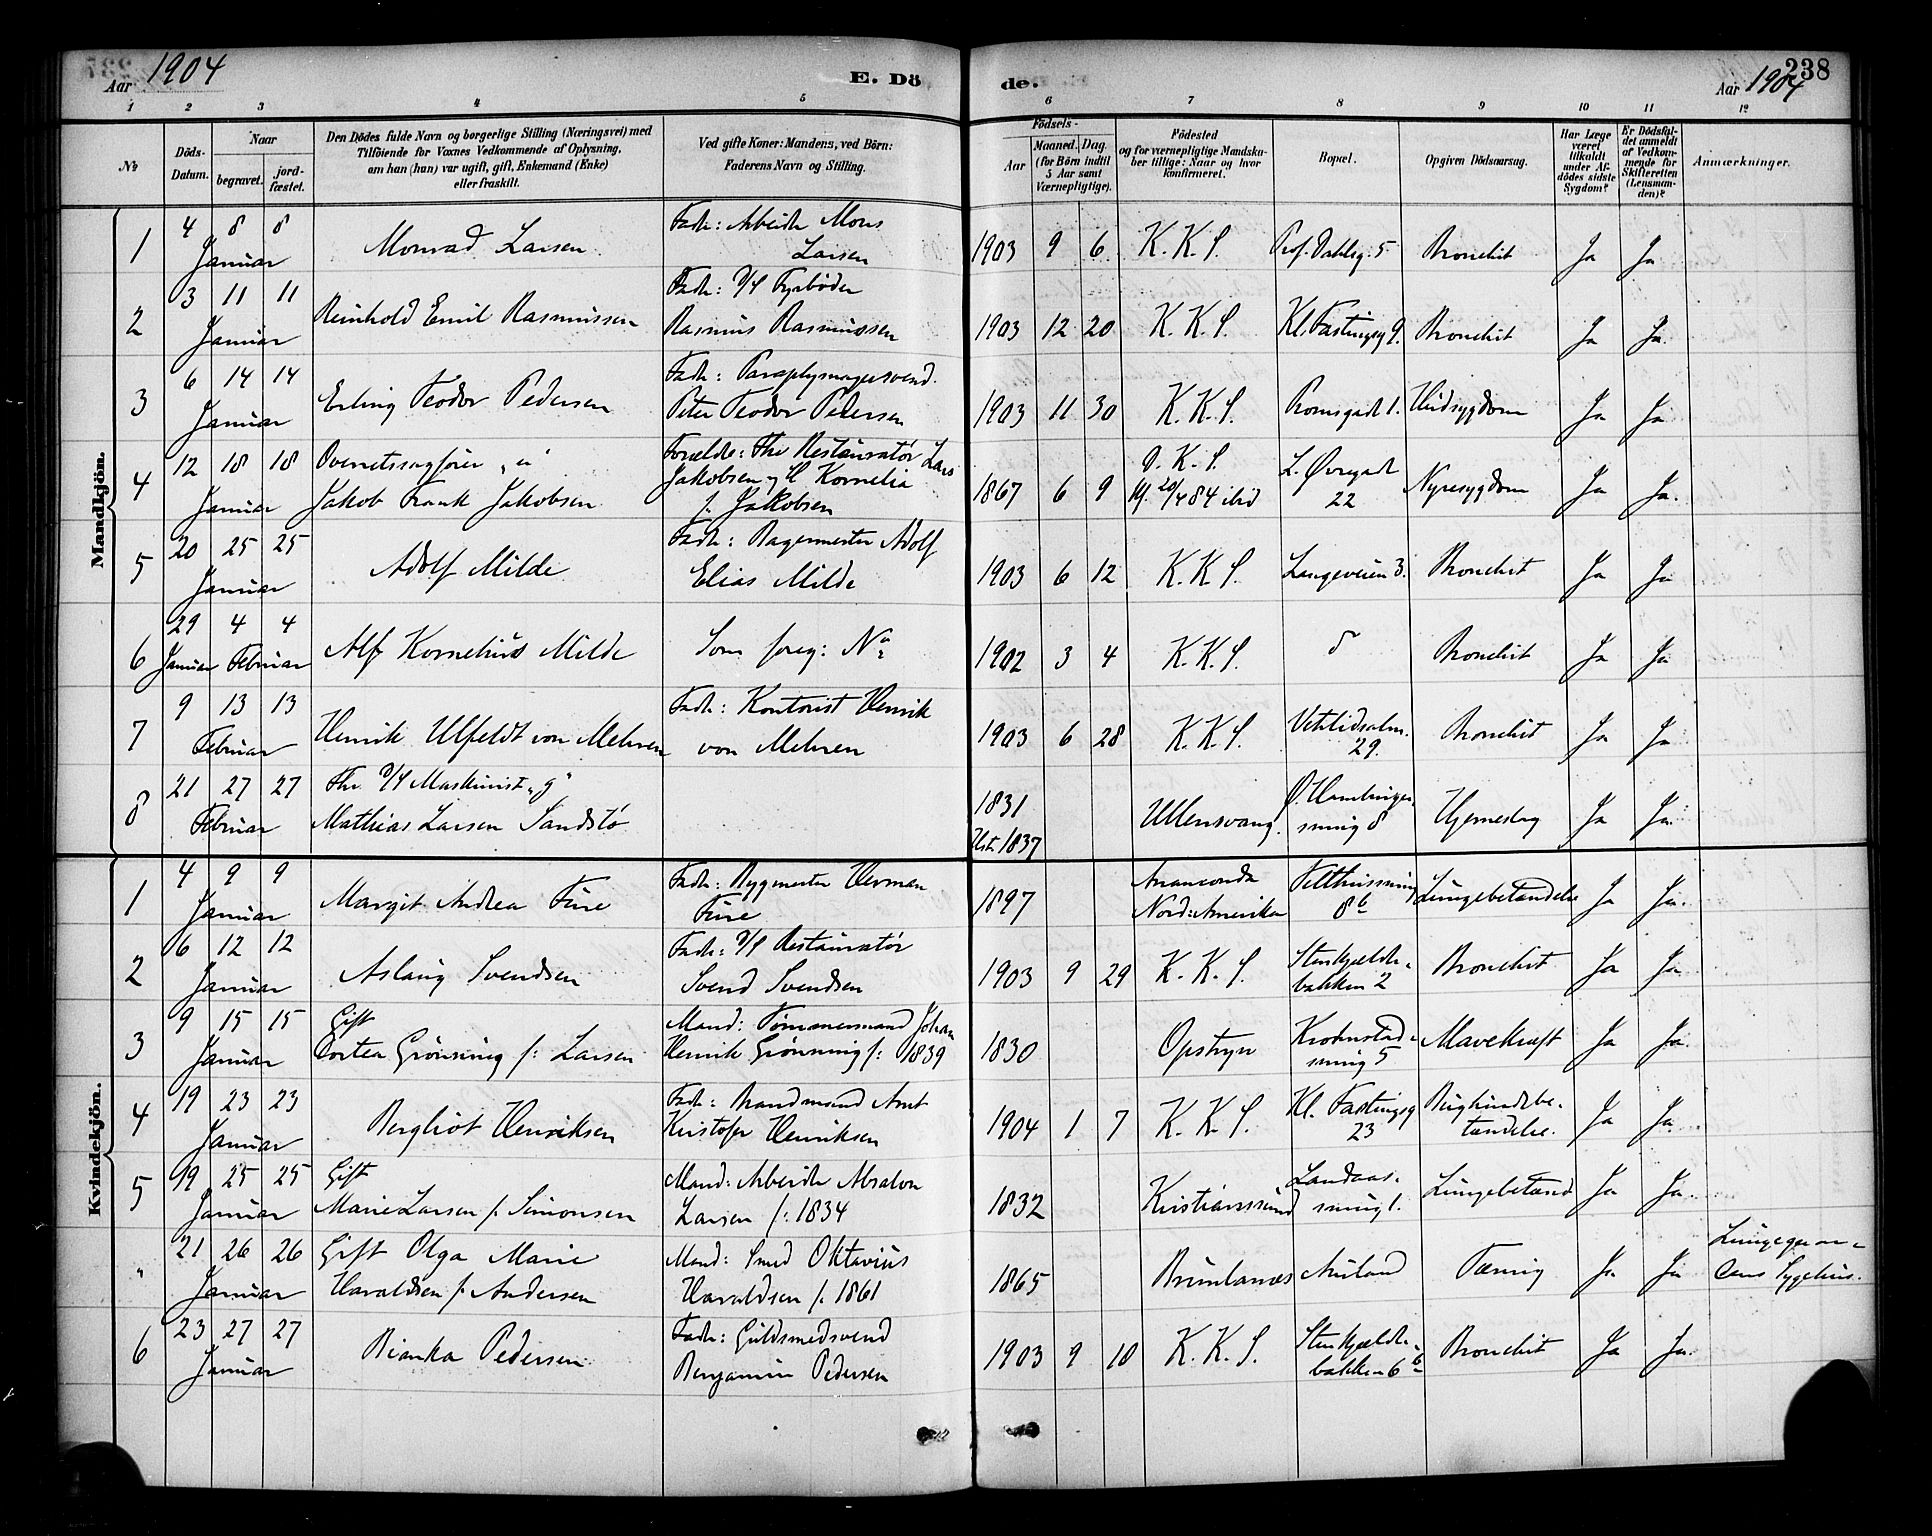 Aar 1904
E. Dö
de.
238
Aar 1904
1 2 3 4 5 6 7 8 9 10 11 12
No
Döds-Datum.
Naar
begravet.
jord-fæstet.
Den Dödes fulde Navn og borgerlige Stilling (Næringsvei) med
Tilföiende for Voxnes Vedkommende af Oplysning,
om han (hun) var ugift, gift, Enkemand (Enke)
eller fraskilt.
Ved gifte Koner: Mandens, ved Börn:
Faderens Navn og Stilling.
Födsels-
Aar
Maaned. Dag.
(for Börn indtil
5 Aar samt
Værnepligtige).
Födested
og for værnepligtige Mandska-
ber tillige: Naar og hvor
konfirmeret.
Bopæl.
Opgiven Dödsaarsag.
Har Læge
været
tilkaldt
under Af-
dödes sidste
Sygdom?
Er Dödsfal-
det anmeldt
af Vedkom-
mende for
Skifteretten
(Lensman-
den)?
Anmærkninger.
Mandkjön.
1 4 8 8 Januar Monrad Larsen Fadr: Arbeidr Mons Larsen 1903 9 6 K. K. S. Prof. Dahlsg. 5 Bronchit Ja Ja
2 3 11 11 Januar Reinhold Emil Rasmussen Fadr: D/S Fyrbøder Rasmus Rasmussen 1903 12 20 K. K. S. Kl. Fastingsg 9. Bronchit Ja Ja.
3 6 14 14 Januar Erling Teodor Pedersen Fadr: Paraplymagersvend. Peter Teodor Pedersen 1903 11 30 K. K. S. Promsgade 1. Hudsygdom Ja Ja
4 12 18 18 Januar Overretssagfører „u“ Jakob Frank Jakobsen Forældre: Fhv Restauratør Lars Jakobsen og H Kornelia f. Jakobsen 1867 6 9 D. K. S. 20/4 84 ibid L. Øvregade 22 Nyresygdom Ja Ja.
5 20 25 25 Januar Adolf Milde Fadr: Bagermester Adolf Elias Milde 1903 6 12 K. K. S. Langeveien 3. Bronchit Ja Ja
6 29 4 4 Januar Februar Alf Kornelius Milde Som foreg: No 1902 3 4 K. K. S. Bronchit Ja Ja
7 9 13 13 Februar Henrik Ulfeldt von Mehren Fadr: Kontorist Henrik von Mehren 1903 6 28 K. K. S. Vetrlidsalm. 29. Bronchit Ja Ja
8 21 27 27 Februar Fhv. D/S Maskinist „g“ Mathias Larsen Sandstø 1831 Hstr. 1837 Ullensvang. Ø. Hamburger smug 8 Hjerneslag Ja Ja.
Kvindekjön.
1 4 9 9 Januar Margit Andrea Fure Fadr: Bygmester Herman Fure 1897 Anaconda Nord-Amerika Felthussmug 8b Lungebetændelse Ja Ja.
2 6 12 12 Januar Aslaug Svendsen Fadr: D/S Restauratør Svend Svendsen 1903 9 29 K. K. S. Stenkjælder-bakken 2 Bronchit Ja Ja
3 9 15 15 Januar Gift Dortea Grönning f: Larsen Mand: Tømmermand Johan Henrik Grönning f: 1839 1830 Opstryn Krohnstad-smug 5 Mavekræft Ja Ja.
4 19 23 23 Januar Bergliot Henriksen Fadr: Brandmand Arnt Kristofer Henriksen 1904 1 7 K. K. S. Kl. Fastingsg 23 Bughindebe-tændelse. Ja Ja.
5 19 25 25 Januar Gift Marie Larsen f. Simonsen Mand: Arbeidr Absalon Larsen f: 1834 1832 Kristianssund Landaas-smug 1. Lungebetænd Ja Ja.
„ 21 26 26 Januar Gift Olga Marie Haraldsen f. Andersen Mand: Smed Oktavius Haraldsen f. 1861 1865 Brunlanæs Auland Tæring Ja Ja Lungegaar-dens Sygehus.
6 23 27 27 Januar Bianka Pedersen Fadr: Guldsmedsvend Benjamin Pedersen 1903 9 10 K. K. S. Stenkjælder-bakken 6b Bronchit Ja Ja.